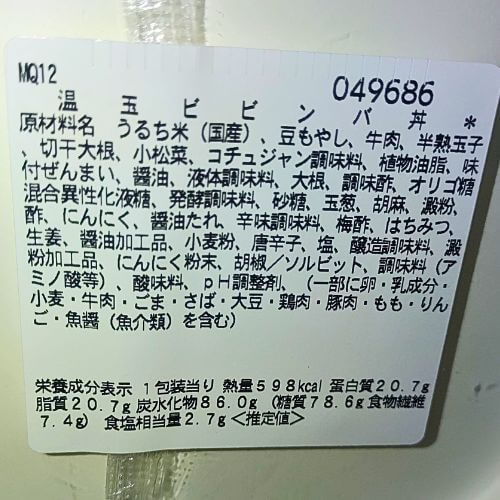 MQ12
049686
温玉ビビンバ丼 *
原材料名 うるち米（国産）、豆もやし、牛肉、半熟玉子
、切干大根、小松菜、コチュジャン調味料、植物油脂、味
付ぜんまい、醤油、液体調味料、大根、調味酢、オリゴ糖
混合異性化液糖、発酵調味料、砂糖、玉葱、胡麻、澱粉、
酢、にんにく、醤油たれ、辛味調味料、梅酢、はちみつ、
生姜、醤油加工品、小麦粉、唐辛子、塩、醸造調味料、澱
粉加工品、にんにく粉末、胡椒／ソルビット、調味料（ア
ミノ酸等）、酸味料、ｐＨ調整剤、（一部に卵・乳成分・
小麦・牛肉・ごま・さば・大豆・鶏肉・豚肉・もも・りん
ご・魚醤（魚介類）を含む）
栄養成分表示 １包装当り 熱量５９８kcal 蛋白質２０.７g
脂質２０.７g 炭水化物８６.０g （糖質７８.６g 食物繊維
７.４g） 食塩相当量２.７g＜推定値＞